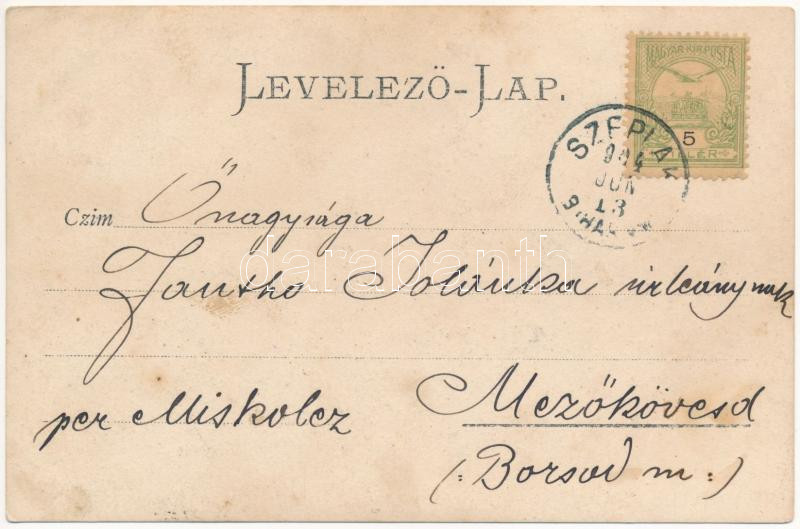 LEVELEZŐ-LAP.
MAGYAR KIR. POSTA
5
FILLÉR
SZÉPLAK
904
JUN
13
BIHAR VM
Czim Őnagysága
Jantho Jolánka úrleánynak
per Miskolcz Mezőkövesd
(: Borsod m :)
darabanth